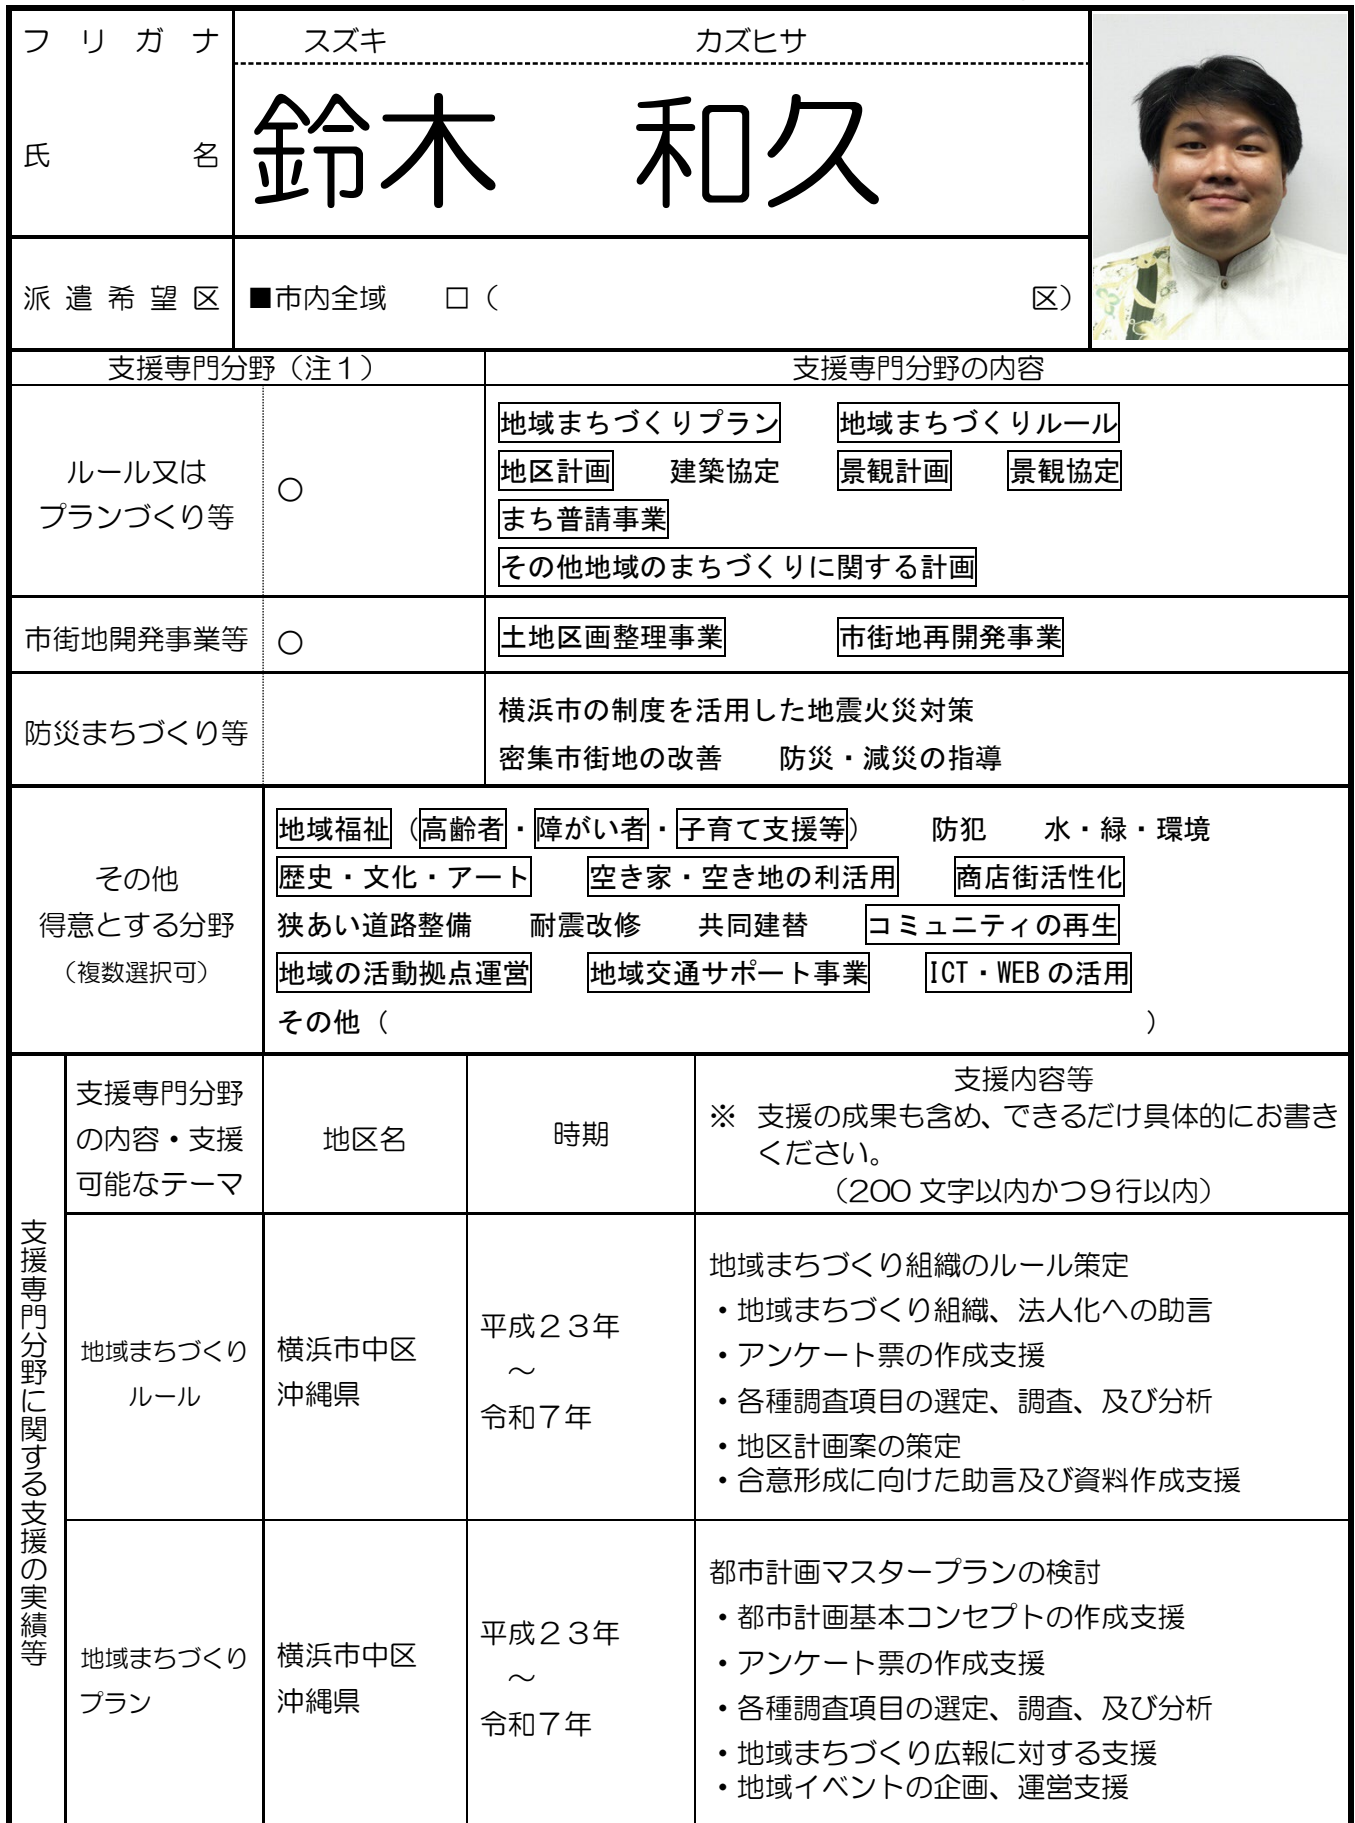 フリガナ　スズキ　カズヒサ
氏名　鈴木　和久
派遣希望区　■市内全域　□（　区）
支援専門分野（注１）　支援専門分野の内容
ルール又は
プランづくり等
○
地域まちづくりプラン　地域まちづくりルール
地区計画　建築協定　景観計画　景観協定
まち普請事業
その他地域のまちづくりに関する計画
市街地開発事業等　○　土地区画整理事業　市街地再開発事業
防災まちづくり等
横浜市の制度を活用した地震火災対策
密集市街地の改善　防災・減災の指導
その他
得意とする分野
（複数選択可）
地域福祉（高齢者・障がい者・子育て支援等）　防犯　水・緑・環境
歴史・文化・アート　空き家・空き地の利活用　商店街活性化
狭あい道路整備　耐震改修　共同建替　コミュニティの再生
地域の活動拠点運営　地域交通サポート事業　ICT・WEBの活用
その他（　）
支援専門分野に関する支援の実績等
支援専門分野
の内容・支援
可能なテーマ
地区名
時期
支援内容等
※　支援の成果も含め、できるだけ具体的にお書き
ください。
（200文字以内かつ９行以内）
地域まちづくり
ルール
横浜市中区
沖縄県
平成２３年
～
令和７年
地域まちづくり組織のルール策定
・地域まちづくり組織、法人化への助言
・アンケート票の作成支援
・各種調査項目の選定、調査、及び分析
・地区計画案の策定
・合意形成に向けた助言及び資料作成支援
地域まちづくり
プラン
横浜市中区
沖縄県
平成２３年
～
令和７年
都市計画マスタープランの検討
・都市計画基本コンセプトの作成支援
・アンケート票の作成支援
・各種調査項目の選定、調査、及び分析
・地域まちづくり広報に対する支援
・地域イベントの企画、運営支援